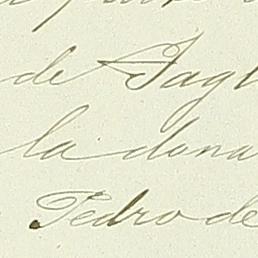 de Tagu
la dona
Pedro de